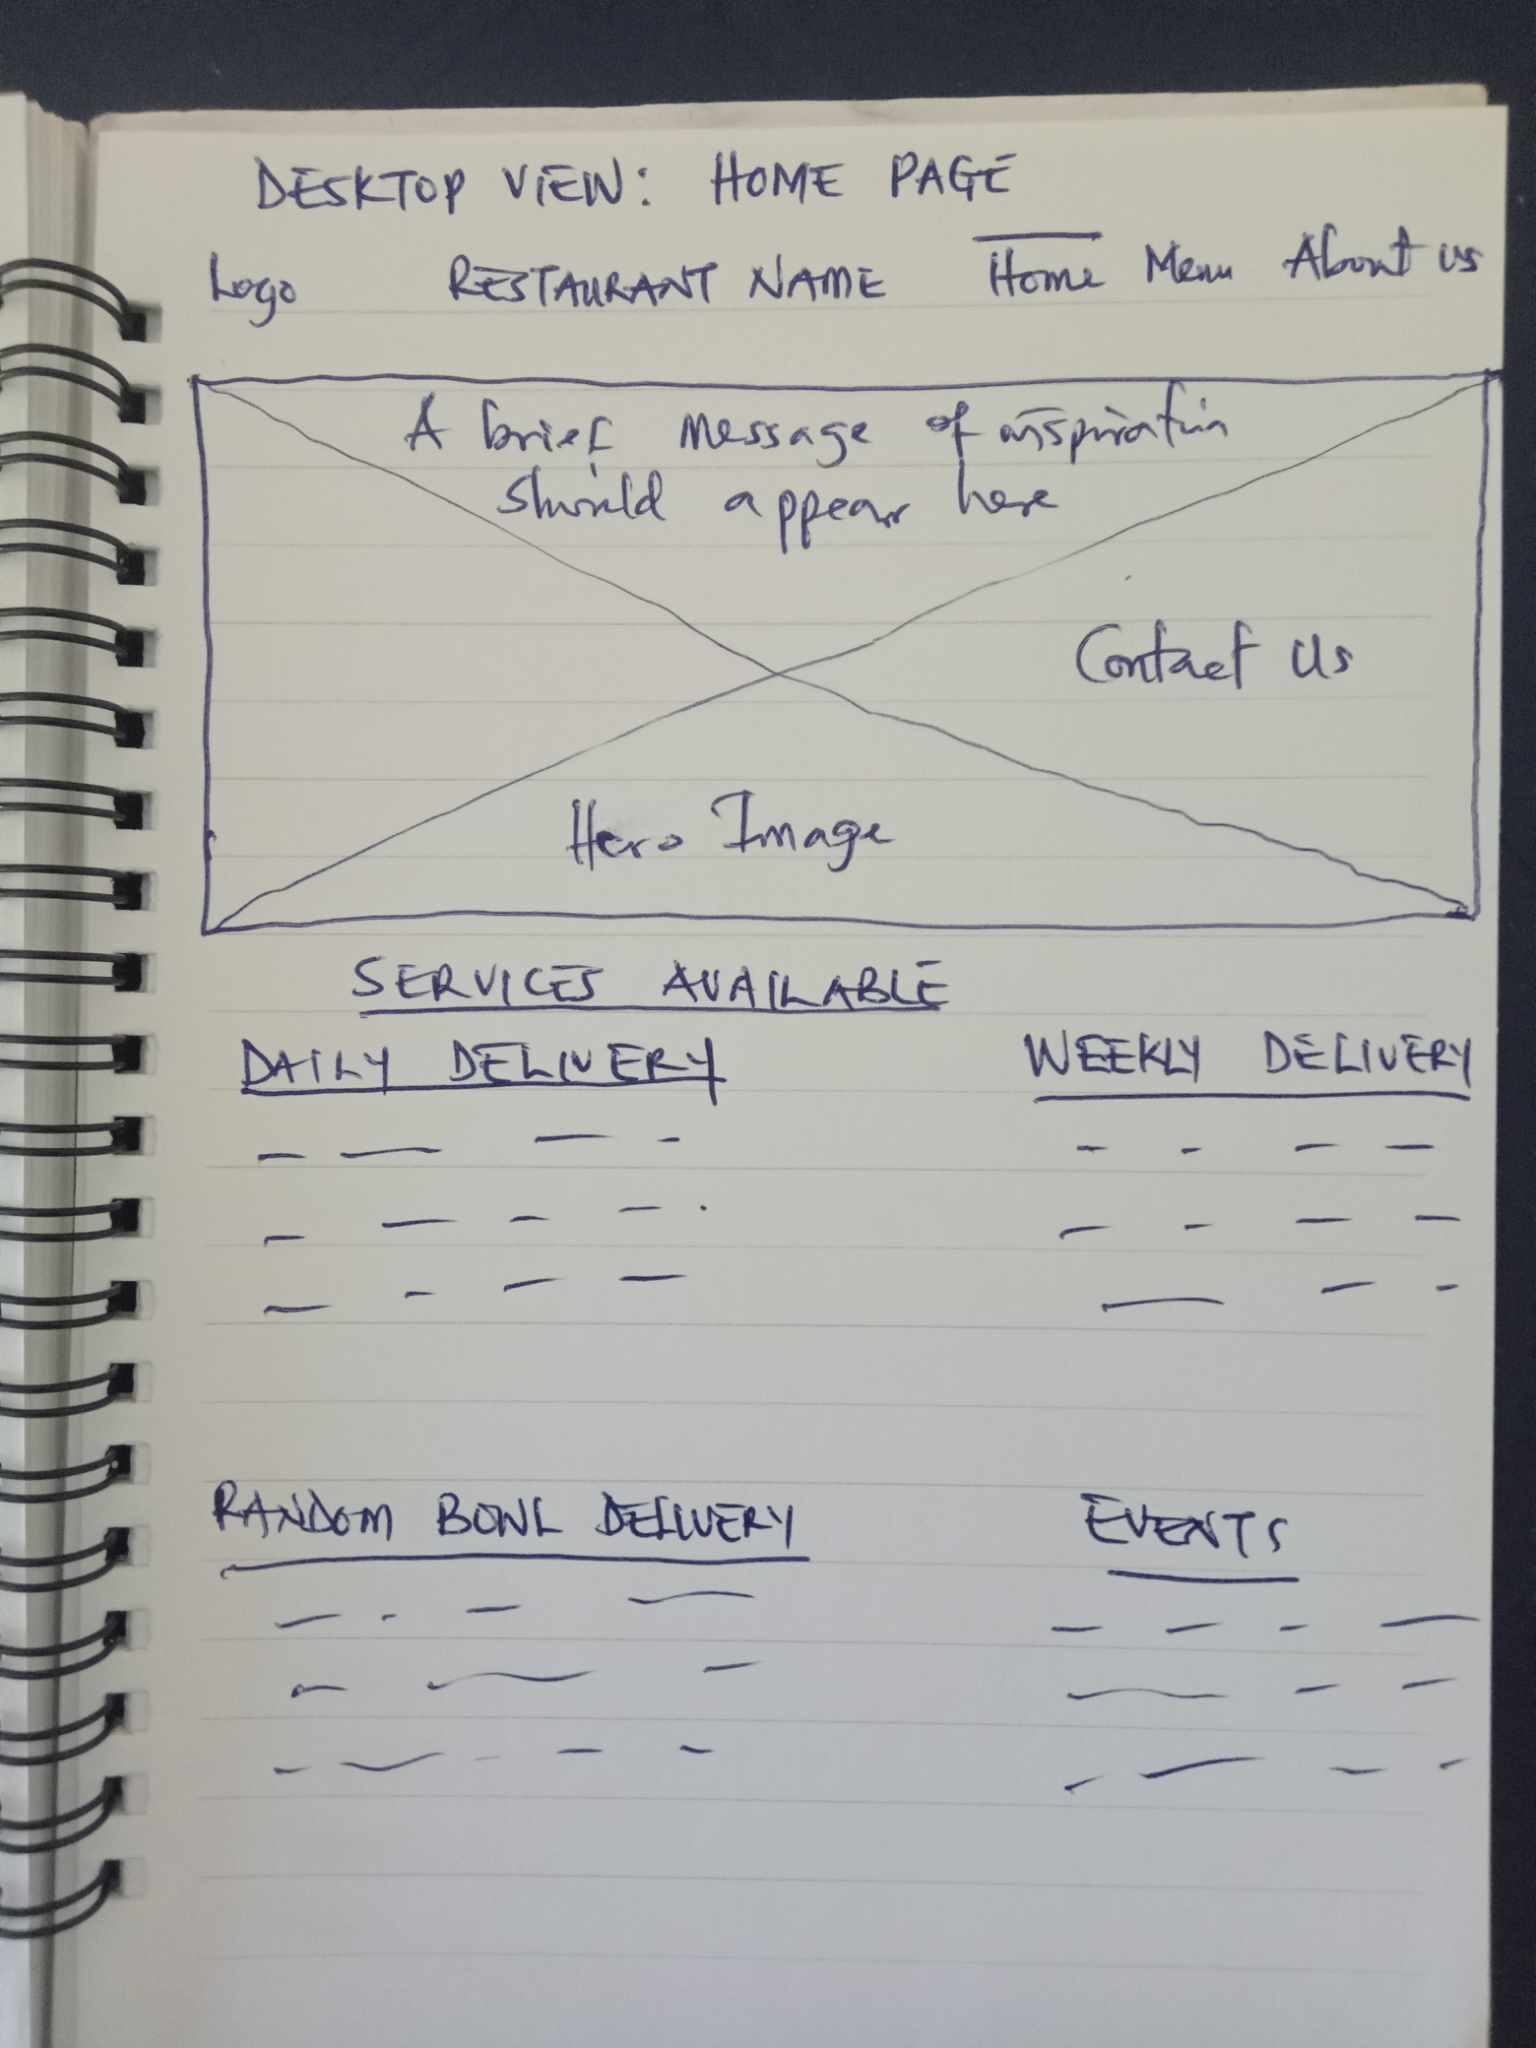 DESKTOP VIEW: HOME PAGE
Logo RESTAURANT NAME Home Menu About us
A brief message of inspiration
should appear here
Contact Us
Hero Image
SERVICES AVAILABLE
DAILY DELIVERY WEEKLY DELIVERY
RANDOM BOWL DELIVERY EVENTS